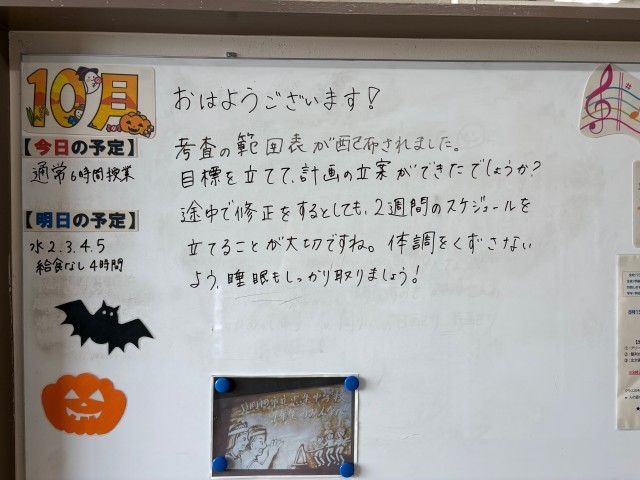 10月
おはようございます!
【今日の予定】
通常6時間授業
考査の範囲表が配布されました。
目標を立てて、計画の立案ができたでしょうか?
途中で修正をするとしても、2週間のスケジュールを
立てることが大切ですね。体調をくずさない
よう、睡眠もしっかり取りましょう!
【明日の予定】
水2.3.4.5
給食なし4時間